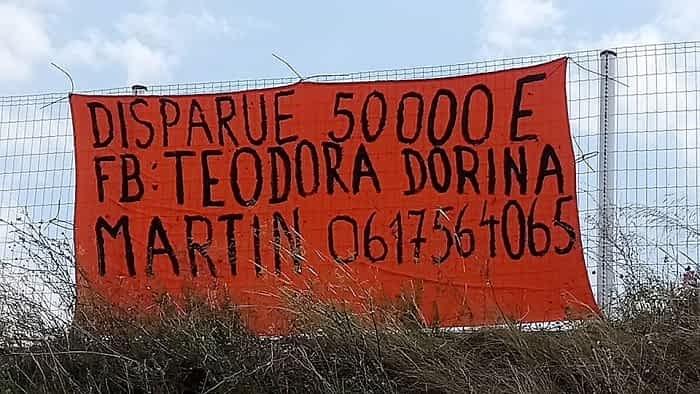 DISPARUE 50000E
FB: TEODORA DORINA
MARTIN 0617564065